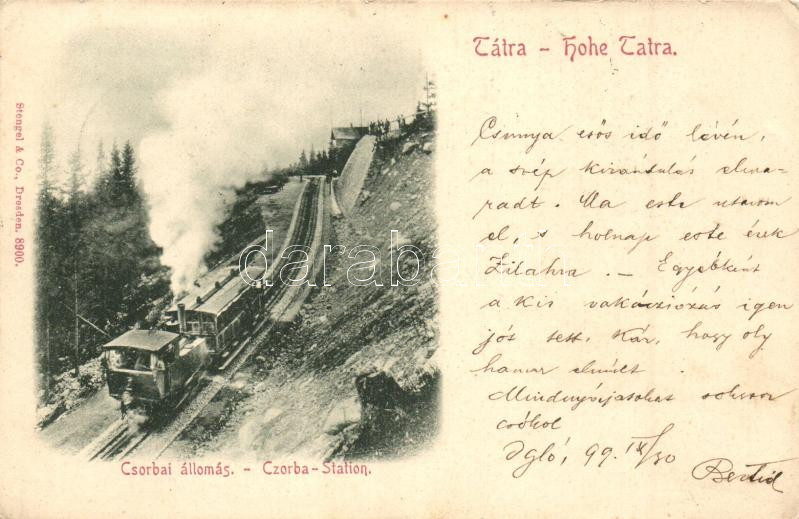 Tátra - Hohe Tatra.
Stengel & Co., Dresden. 8900.
Csunya esős idő lévén,
a szép kirándulás elma-
radt. Ma este utazom
el, s holnap este érek
Zilahra. - Egyébként
a kis vakációzás igen
jót tett. Kár, hogy oly
hamar elmúlt.
Mindnyájatokat sokszor
csókol
Igló, 99. IX/30
darabanth
Csorbai állomás. - Czorba-Station.